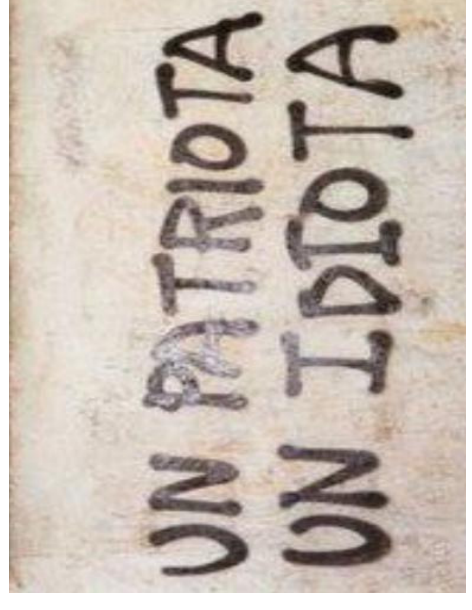 UN PATRIOTA
UN IDIOTA